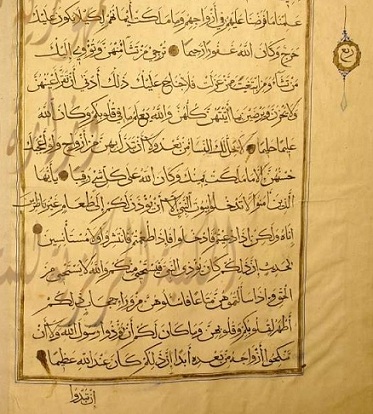 علمنا ما فرضنا عليهم في ازواجهم وما ملكت ايمانهم لكيلا يكون عليك
حرج وكان الله غفورا رحيما ترجي من تشاء منهن وتؤوي اليك
من تشاء ومن ابتغيت ممن عزلت فلا جناح عليك ذلك ادنى ان تقر اعينهن
ولا يحزن ويرضين بما اتيتهن كلهن والله يعلم ما في قلوبكم وكان الله
عليما حليما لا يحل لك النساء من بعد ولا ان تبدل بهن من ازواج ولو اعجبك
حسنهن الا ما ملكت يمينك وكان الله على كل شيء رقيبا يا ايها
الذين امنوا لا تدخلوا بيوت النبي الا ان يؤذن لكم الى طعام غير ناظرين
اناه ولكن اذا دعيتم فادخلوا فاذا طعمتم فانتشروا ولا مستأنسين
لحديث ان ذلكم كان يؤذي النبي فيستحيي منكم والله لا يستحيي من
الحق واذا سالتموهن متاعا فاسالوهن من وراء حجاب ذلكم
اطهر لقلوبكم وقلوبهن وما كان لكم ان تؤذوا رسول الله ولا ان
تنكحوا ازواجه من بعده ابدا ان ذلكم كان عند الله عظيما
ان تبدوا